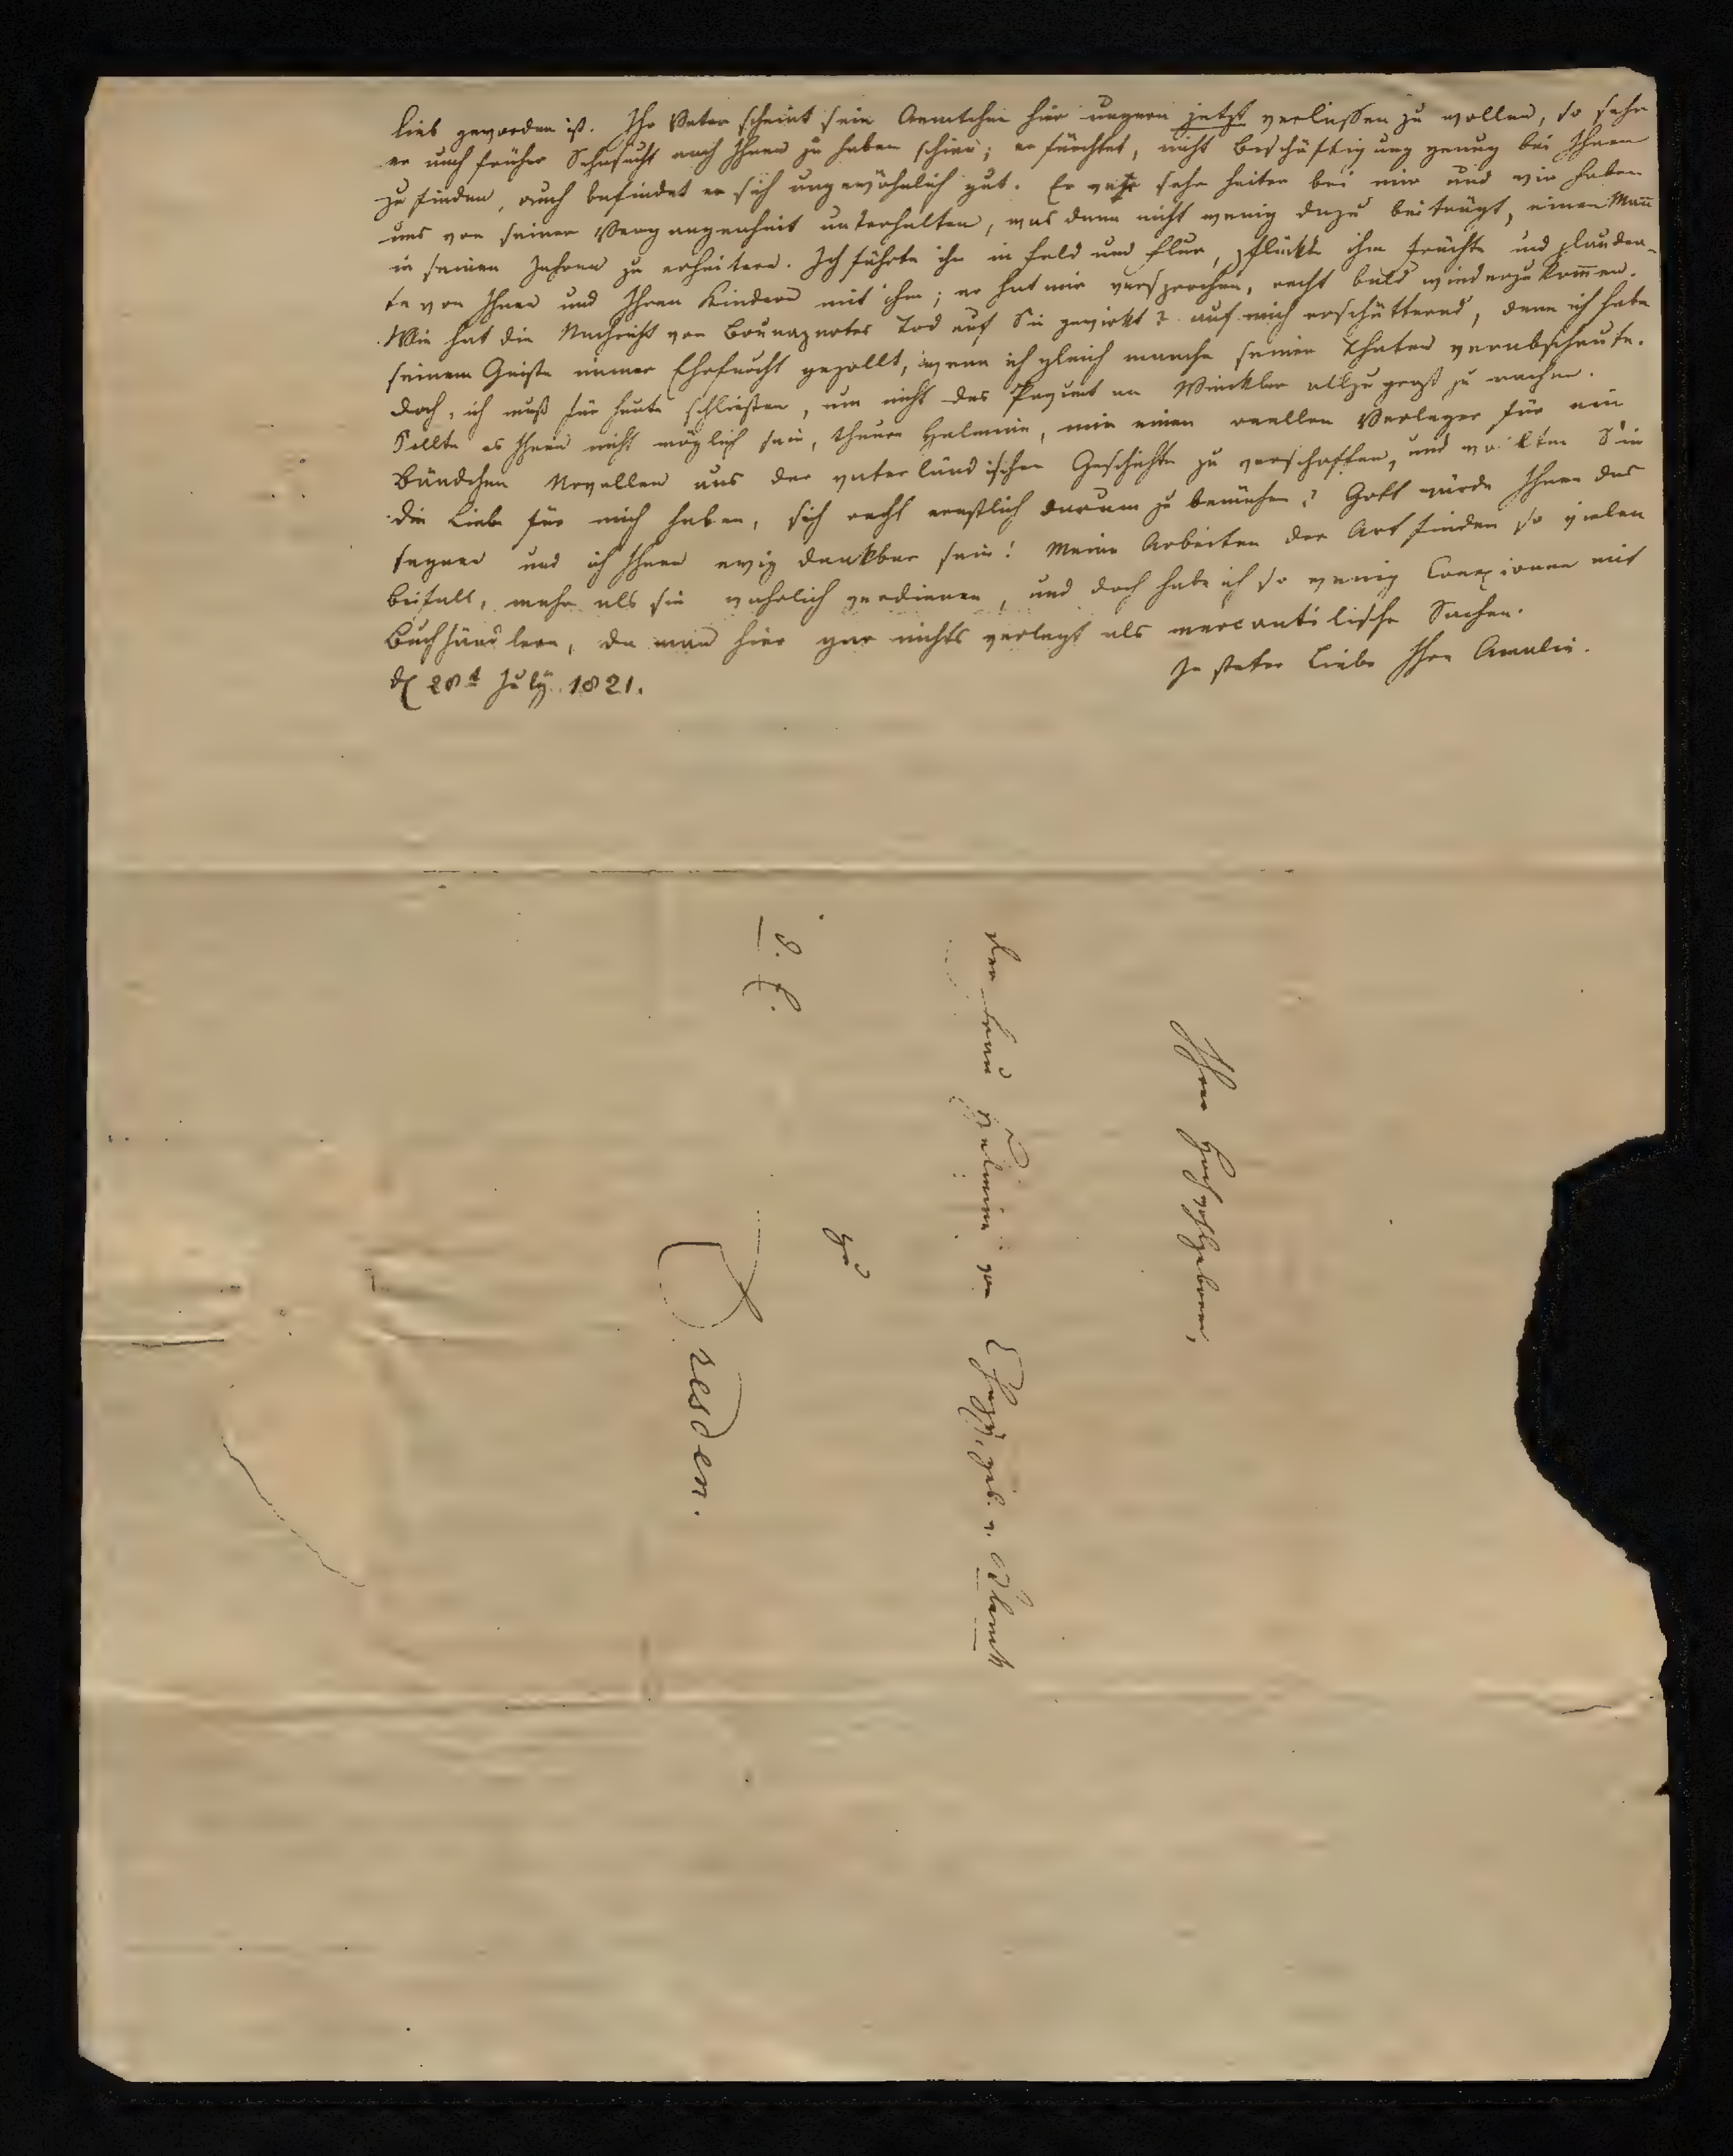 lieb geworden ist. Ihr Vater scheint sein Aemtchen hier ungern jetzt verlassen zu wollen, so sehr
er auch früher Sehnsucht nach Ihnen zu haben schien; er fürchtet, nicht Beschäftigung genug bei Ihnen
zu finden, auch befindet er sich ungewöhnlich gut. Er war sehr heiter bei mir und wir haben
uns von seiner Vergangenheit unterhalten, was denn nicht wenig dazu beiträgt, einen Mañ
in seinen Jahren zu erheitern. Ich führte ihn in Feld und Flur, pflückte ihm Früchte und plauder-
te von Ihnen und Ihren Kindern mit ihm; er hat mir versprochen, recht bald wiederzukom̃en.
Wie hat die Nachricht von Bounapartes Tod auf Sie gewirkt? auf mich erschütternd, denn ich habe
seinem Geiste immer Ehrfurcht gezollt, wenn ich gleich manche seiner Thaten verabscheute.
Doch, ich muß für heute schließen, um nicht das Paquet an Winckler allzu groß zu machen.
Sollte es Ihnen nicht möglich sein, theure Helmina, mir einen reellen Verleger für ein
Bändchen Novellen aus der vaterländischen Geschichte zu verschaffen, und wollten Sie
die Liebe für mich haben, sich recht ernstlich darum zu bemühen? Gott würde Ihnen das
segnen und ich Ihnen ewig dankbar sein! Meine Arbeiten der Art finden so vielen
Beifall, mehr als sie wahrlich verdienen, und doch habe ich so wenig Connexionen mit
Buchhändlern, da man hier gar nichts verlegt als mercantilische Sachen.
In steter Liebe Ihre Amalie.
d 28t July. 1821.
Ihro Hochwohlgeboren,
der Frau Helmina von Chezy, geb. v. Klenck
zu
Dresden.
d. E.